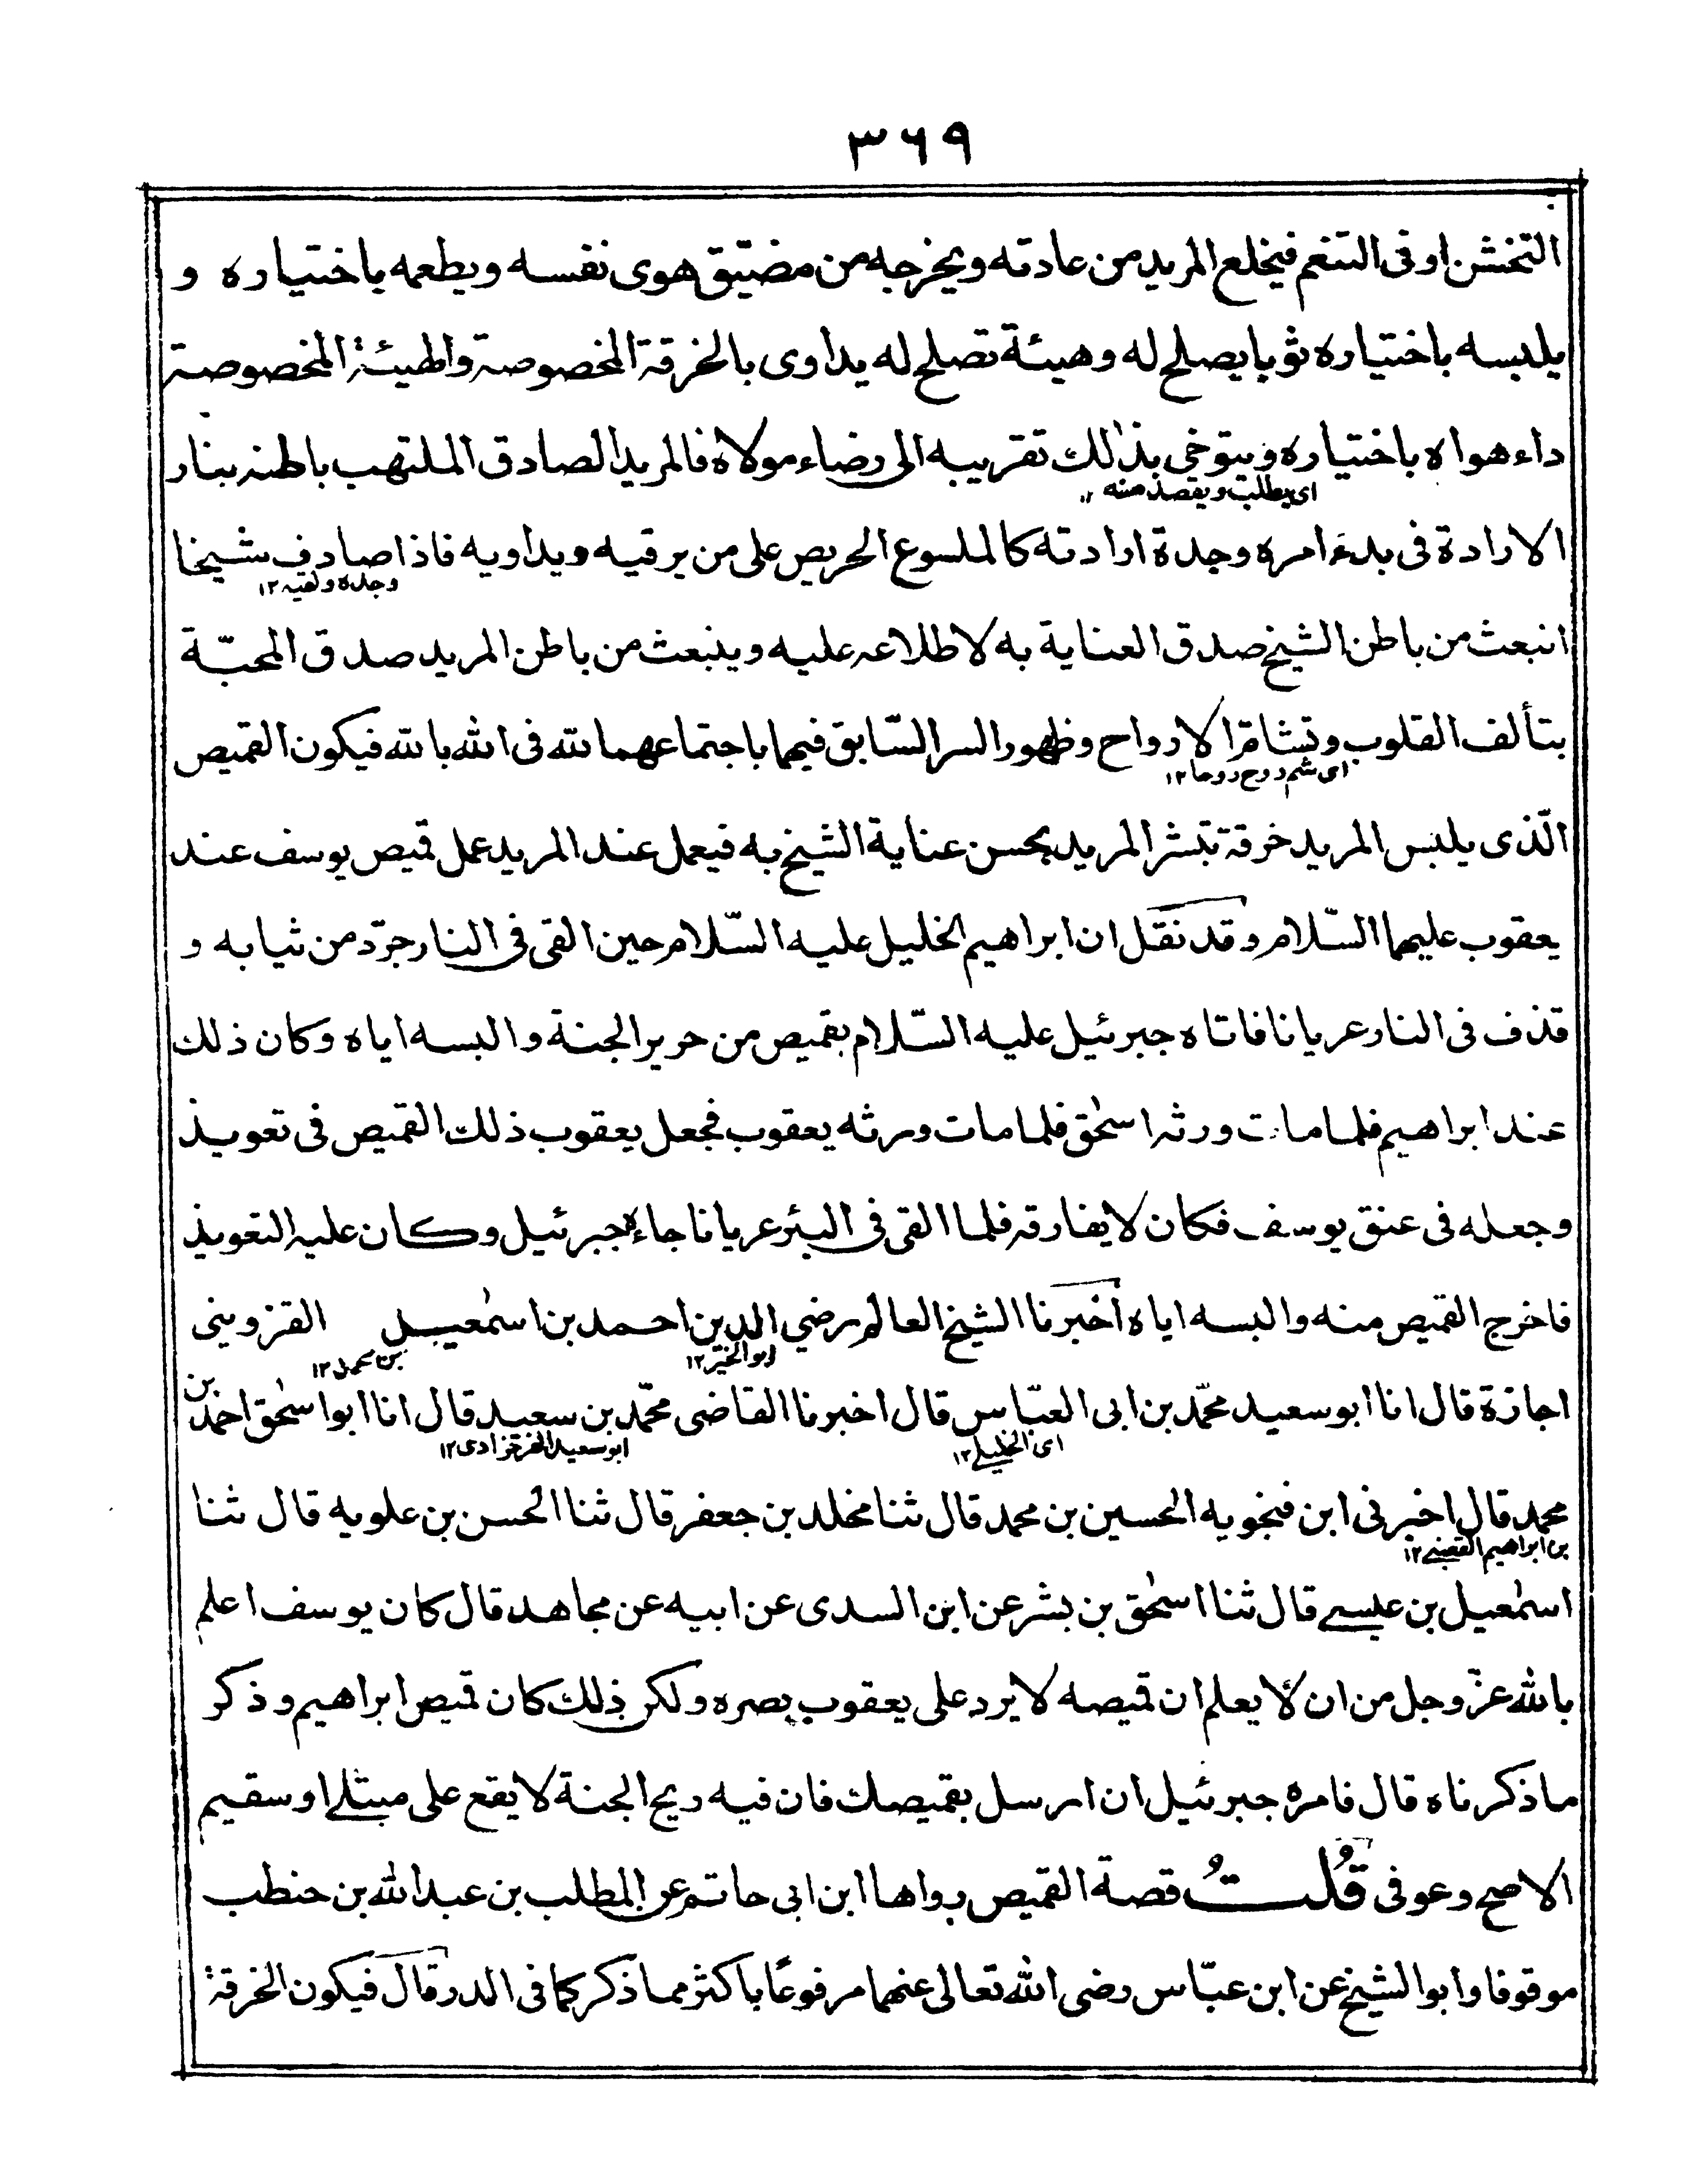 ٣٦٩
التخشن او فی التنعم فیخلع المرید من عادته ویخرجه من مضیّق هوی نفسه ویطعمه باختیاره و
یلبسه باختیاره ثوبا یصلح له وهیئة تصلح له یداوی بالخرقة المخصوصة والهیئة المخصوصة
داء هواه باختیاره ویتوخی بذٰلك تقریبه الی رضاء مولاه فالمرید الصادق الملتهب باطنه بنار
ای یطلب ویقصد منه ۱۲
الارادة فی بدء امره وجدة ارادته کالملسوع الحریص علی من یرقیه ویداویه فاذا صادف شیخا
وجده ولقیه ۱۲
انبعث من باطن الشیخ صدق العنایة به لاطلاعه علیه وینبعث من باطن المرید صدق المحبّة
بتألف القلوب وتشامّ الارواح وظهور السر السّابق فیهما باجتماعهما لله فی الله بالله فیکون القمیص
ای شم روح روحا ۱۲
الّذی یلبس المرید خرقة تبشر المرید بحسن عنایة الشیخ به فیعمل عند المرید عمل قمیص یوسف عند
یعقوب علیهما السّلام وقد نقل ان ابراهیم الخلیل علیه السّلام حین القی فی النار جرّد من ثیابه و
قذف فی النار عریانا فاتاه جبرئیل علیه السّلام بقمیص من حریر الجنة والبسه ایاه وکان ذلك
عند ابراهیم فلما مات ورثه اسحٰق فلما مات ورثه یعقوب فجعل یعقوب ذلك القمیص فی تعویذ
وجعله فی عنق یوسف فکان لا یفارقه فلما القی فی البئر عریانا جاءه جبرئیل وکان علیه التعویذ
فاخرج القمیص منه والبسه ایاه اخبرنا الشیخ العالم رضی الدین احمد بن اسمٰعیل القزوینی
ابو الخیر ۱۲ بن محمد ۱۲
اجازة قال انا ابو سعید محمّد بن ابی العبّاس قال اخبرنا القاضی محمّد بن سعید قال انا ابو اسحٰق احمد بن
ای الخلیلی ۱۲ ابو سعید الفرخزادی ۱۲
محمد قال اخبرنی ابن فنجویه الحسین بن محمد قال ثنا مخلد بن جعفر قال ثنا الحسن بن علویه قال ثنا
بن ابراهیم ۱۲
اسمٰعیل بن عیسے قال ثنا اسحٰق بن بشر عن ابن السدی عن ابیه عن مجاهد قال کان یوسف اعلم
بالله عزّ وجل من ان لا یعلم ان قمیصه لا یرد علی یعقوب بصره ولکن ذلك کان قمیص ابراهیم وذکر
ما ذکرناه قال فامره جبرئیل ان ارسل بقمیصك فان فیه ریح الجنة لا یقع علی مبتلے او سقیم
الا صح وعوفی قُلتُ قصة القمیص رواها ابن ابی حاتم عن المطلب بن عبد الله بن حنطب
موقوفا وابو الشیخ عن ابن عبّاس رضی الله تعالی عنهما مرفوعًا باکثر مما ذکر کما فی الدر قال فیکون الخرقة